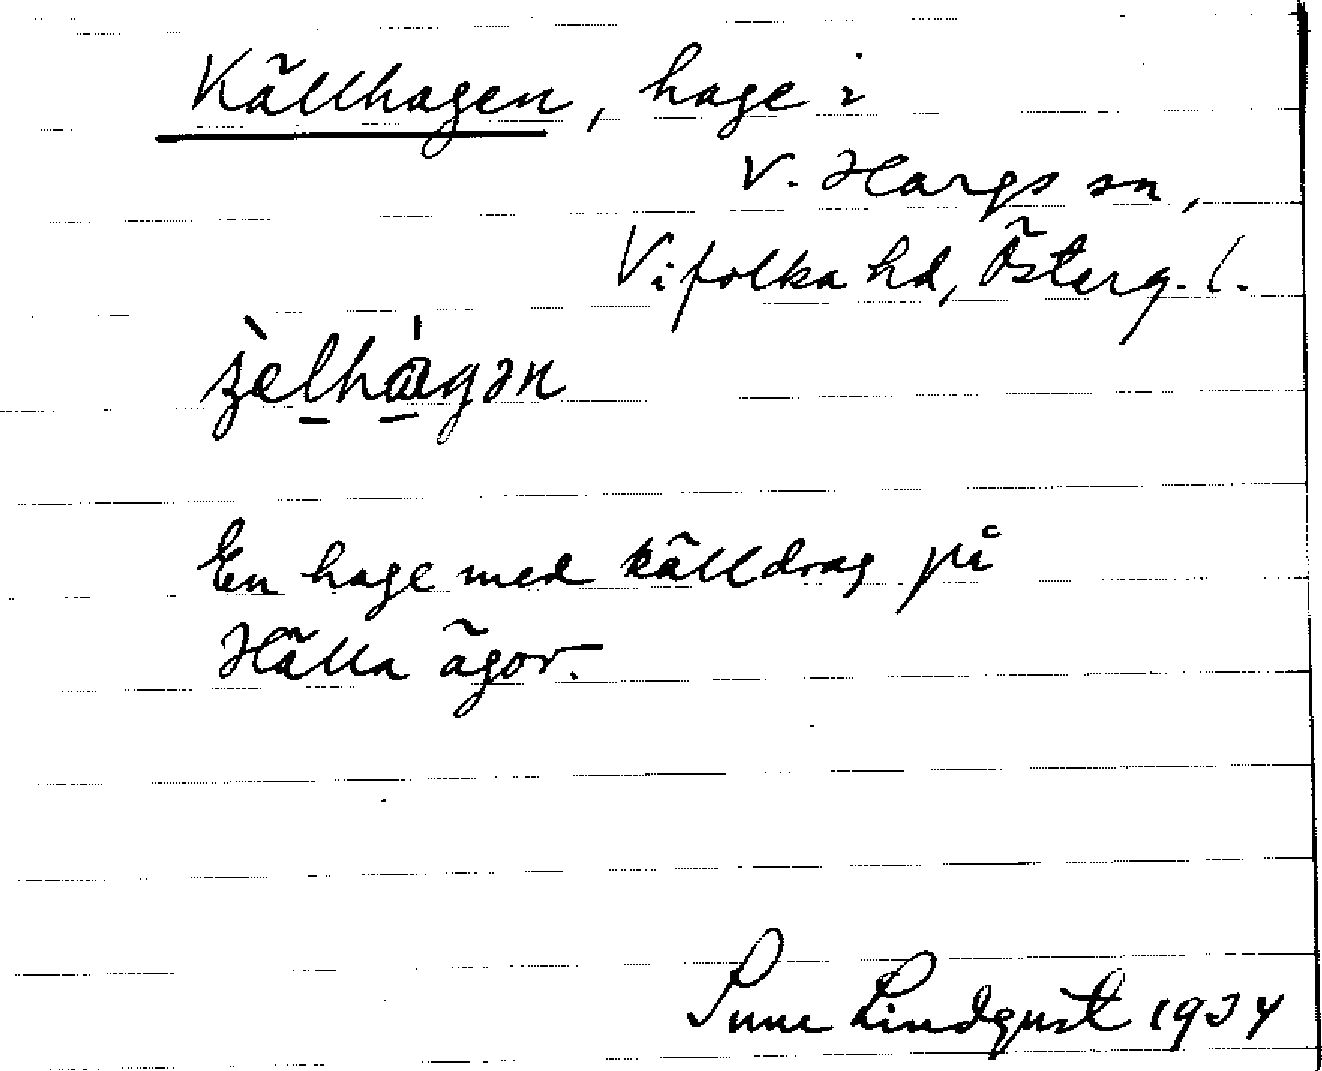 Källhagen, hage i
V. Hargs sn,
Vifolka hd, Österg. l.
En hage med källdrag på
Hälla ägor.
Sune Lindqvist 1934